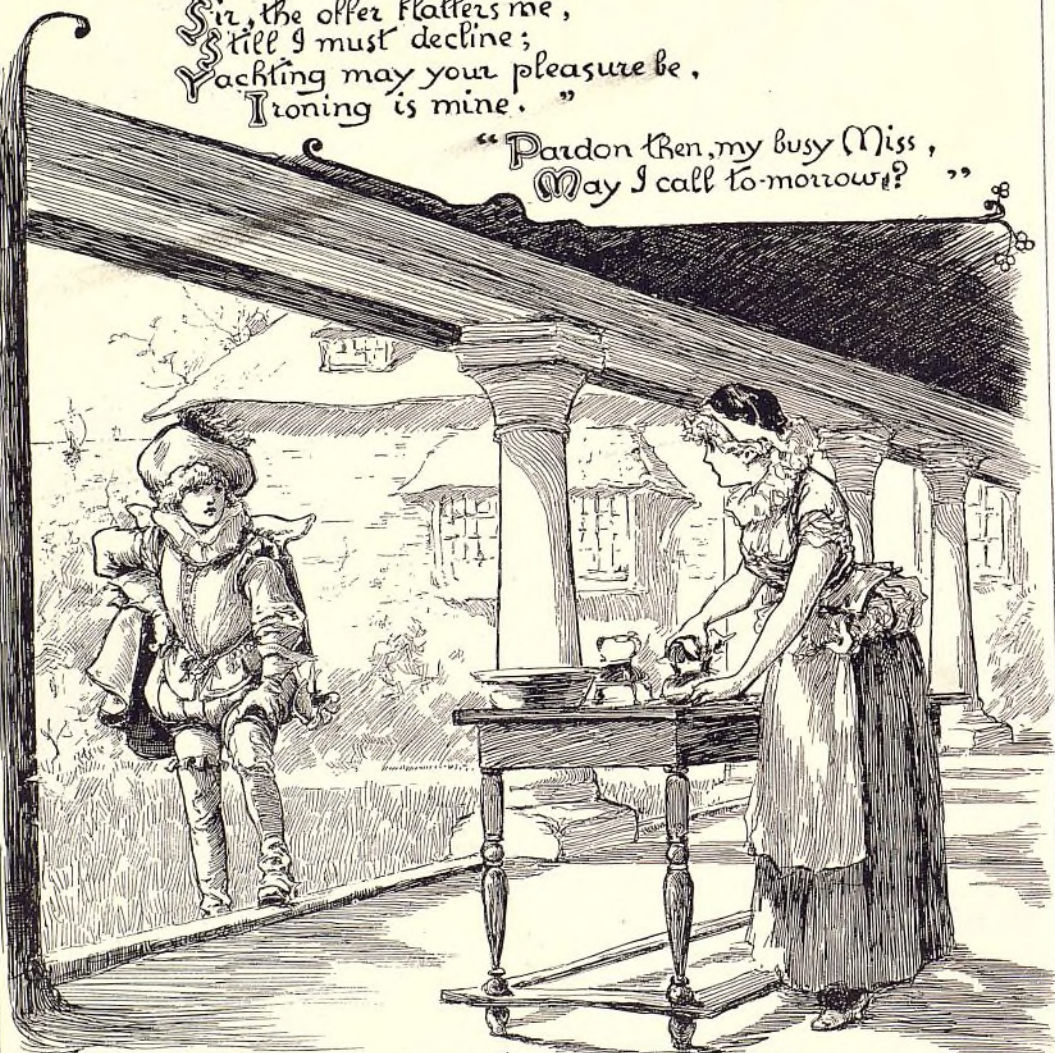 Sir, the offer flatters me,
Still I must decline;
Yachting may your pleasure be,
Ironing is mine. ”
“ Pardon then, my busy Miss,
May I call to-morrow? ”